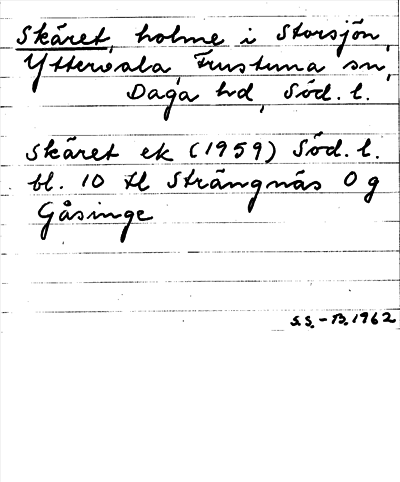 Skäret, holme i Storsjön,
Yttervala, Frustuna sn,
Daga hd, Söd. l.
Skäret ek (1959) Söd. l.
bl. 10 tl Strängnäs O g
Gåsinge
S.S.-B. 1962